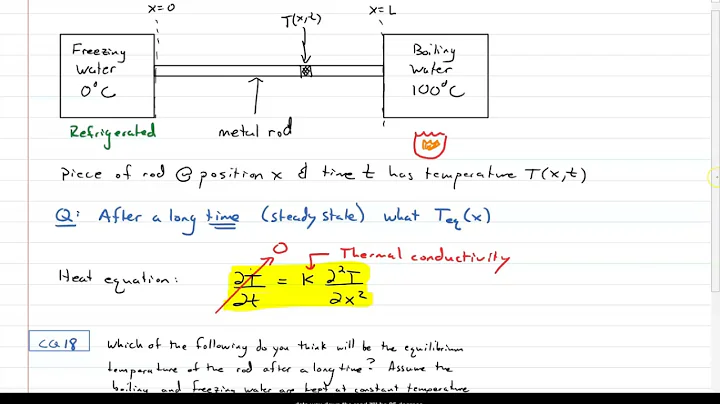 x=0
x=L
T(x,t)
Freezing
water
0°C
Boiling
water
100°C
Refrigerated
metal rod
Piece of rod @ position x & time t has temperature T(x,t)
Q: After a long time (steady state) what Teq(x)
0
Thermal conductivity
Heat equation: ∂T/∂t = K ∂²T/∂x²
CQ18
Which of the following do you think will be the equilibrium
temperature of the rod after a long time? Assume the
boiling and freezing water are kept at constant temperature